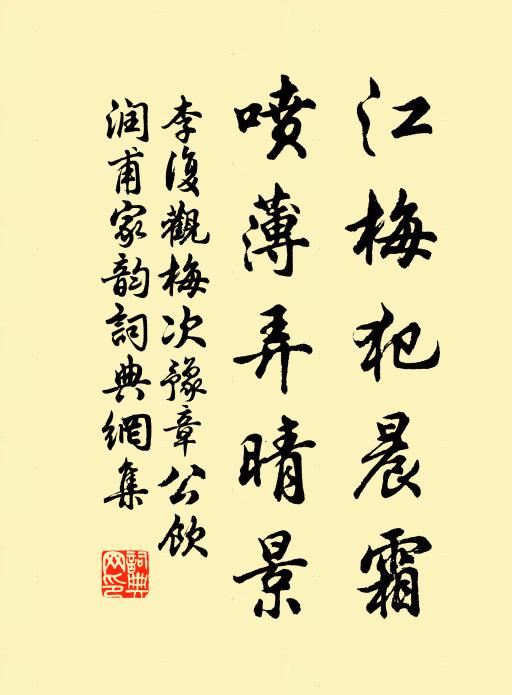 江梅犯晨霜
喷薄弄晴景
李復觀梅次豫章公飲
润甫家韵詞典網集
詞典網印